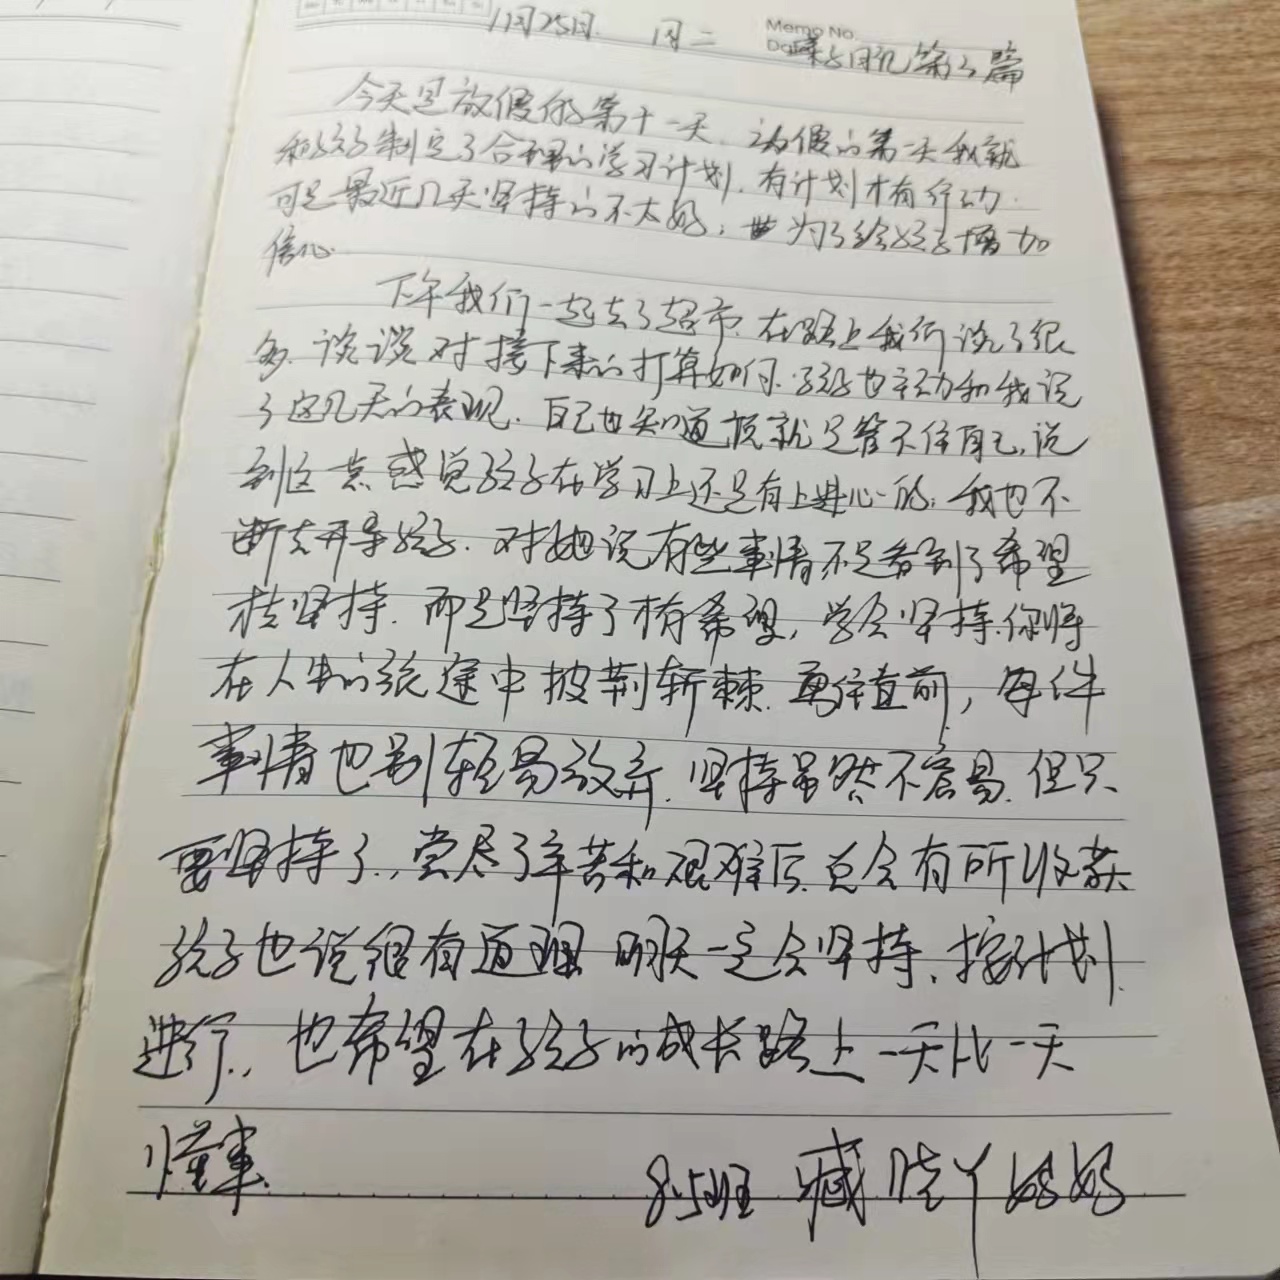 11月25日. 周二
Memo No.
亲子日记第3篇
今天是放假的第十一天、放假的第一天我就
和孩子制定了合理的学习计划,有计划才有行动.
可是最近几天坚持的不太好,为了给孩子增加
信心.
下午我们一起去了超市、在路上我们谈了很
多、谈谈对接下来的打算如何.孩子也主动和我说
了这几天的表现、自己也知道就是管不住自己,说
到这点感觉孩子在学习上还是有上进心的,我也不
断去开导孩子.对她说有些事情不是看到了希望
才去坚持.而是坚持了才有希望,学会坚持.你将
在人生的旅途中披荆斩棘.勇往直前,每件
事情也别轻易放弃.坚持虽然不容易.但只
要坚持了.,尝尽了辛苦和艰难后.总会有所收获
孩子也说很有道理 明天一定会坚持、按计划
进行.,也希望在孩子的成长路上一天比一天
懂事.
8.5班 臧晓丫妈妈